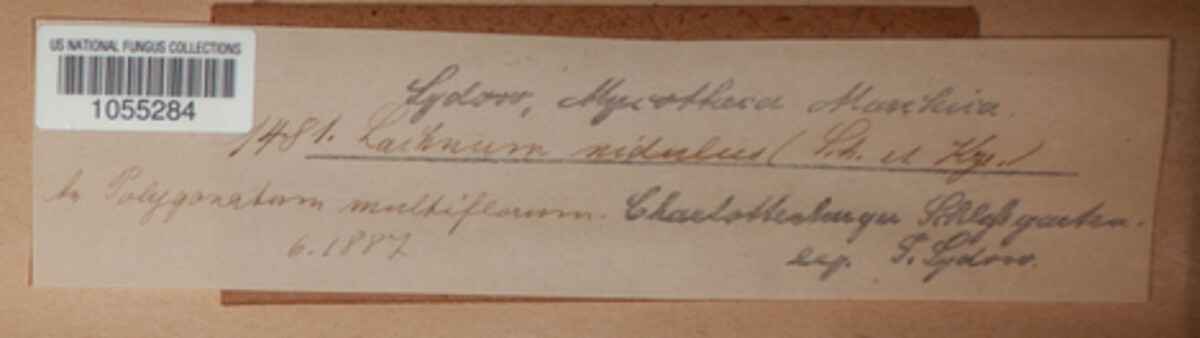 US NATIONAL FUNGUS COLLECTIONS
1055284
Sydow, Mycotheca Marchica.
1481. Lachnum nidulus (Sch. et Kze.)
An Polygonatum multiflorum. Charlottenburger Schloßgarten.
6.1887
leg. P. Sydow.